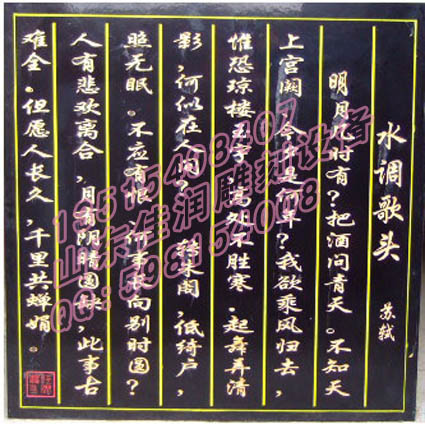 水调歌头
苏轼
明月几时有？把酒问青天。不知天
上宫阙，今夕是何年？我欲乘风归去，
惟恐琼楼玉宇，高处不胜寒．起舞弄清
影，何似在人间？转朱阁，低绮户，
照无眠．不应有恨，何事长向别时圆？
人有悲欢离合，月有阴晴圆缺，此事古
难全．但愿人长久，千里共蝉娟。
山东佳润雕刻设备
QQ:598154008